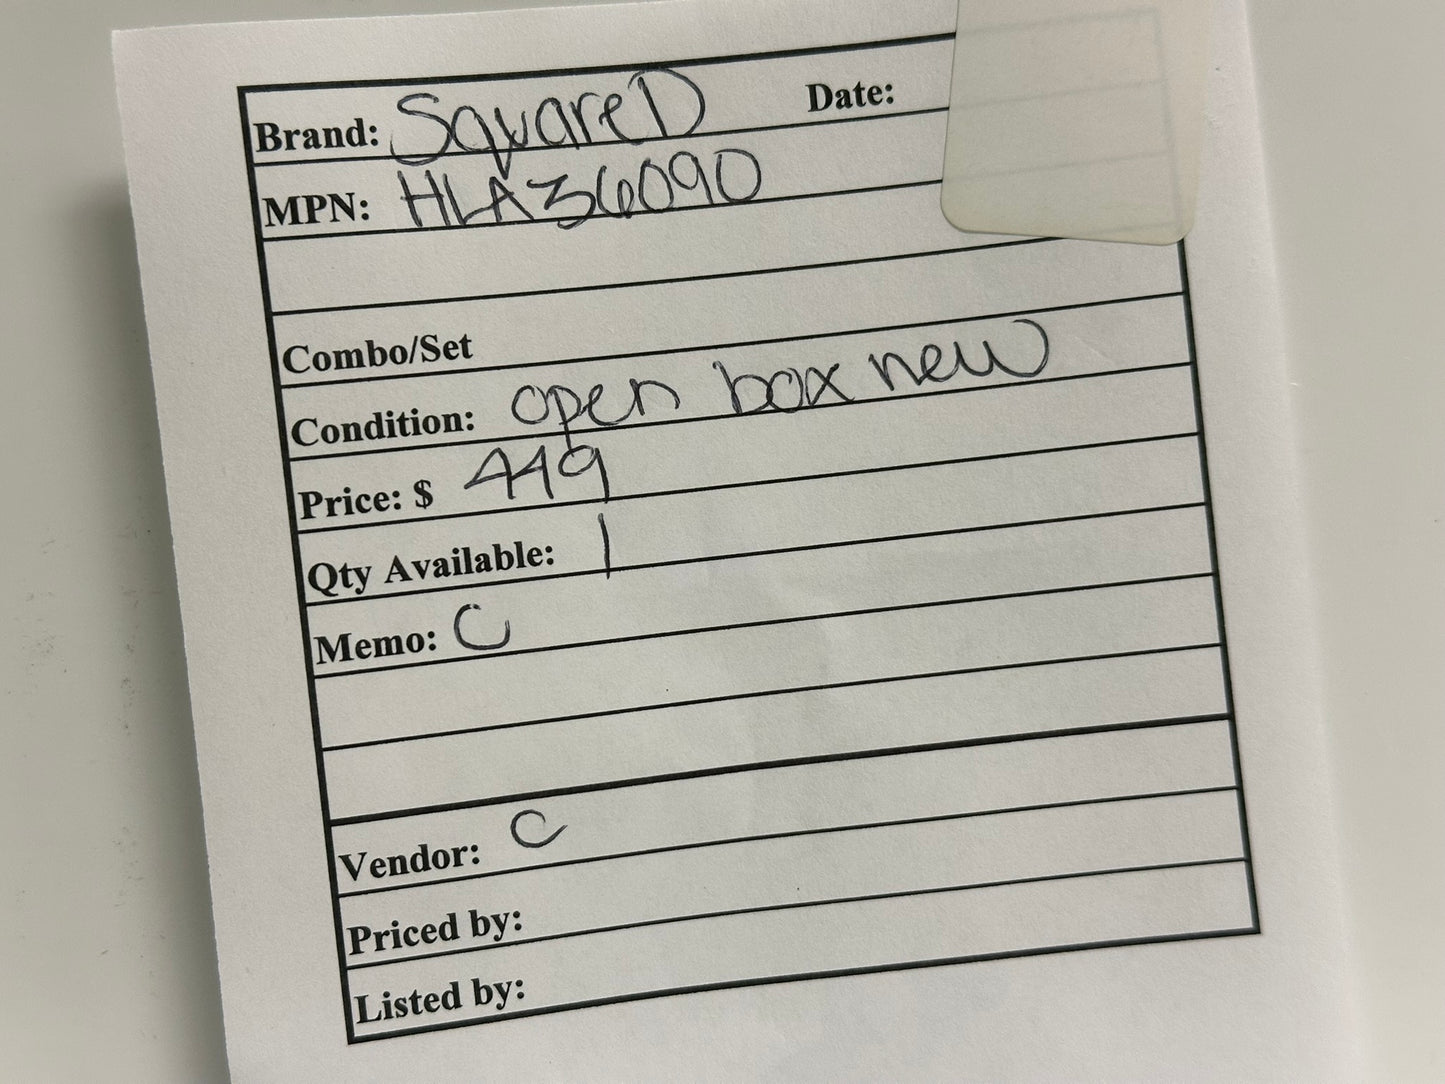 Brand: Square D Date:
MPN: HLA36090
Combo/Set
Condition: open box new
Price: $ 449
Qty Available: 1
Memo: C
Vendor: C
Priced by:
Listed by: